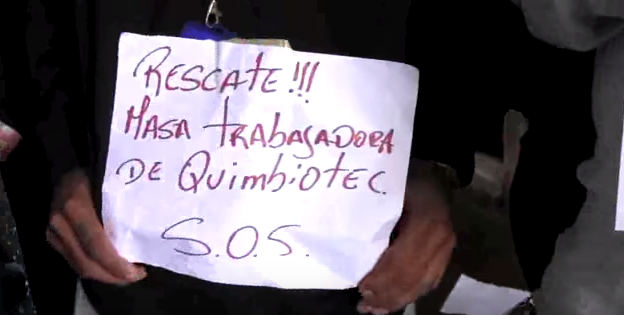 RESCATE!!!
MASA TRABAJADORA
DE QUIMBIOTEC
S.O.S.